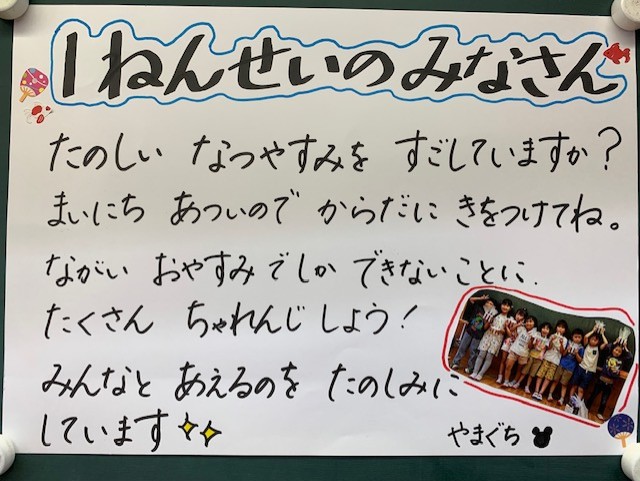 1ねんせいのみなさん
たのしい なつやすみを すごしていますか?
まいにち あついので からだに きをつけてね。
ながい おやすみでしか できないことに
たくさん ちゃれんじ しよう!
みんなと あえるのを たのしみに
しています
やまぐち